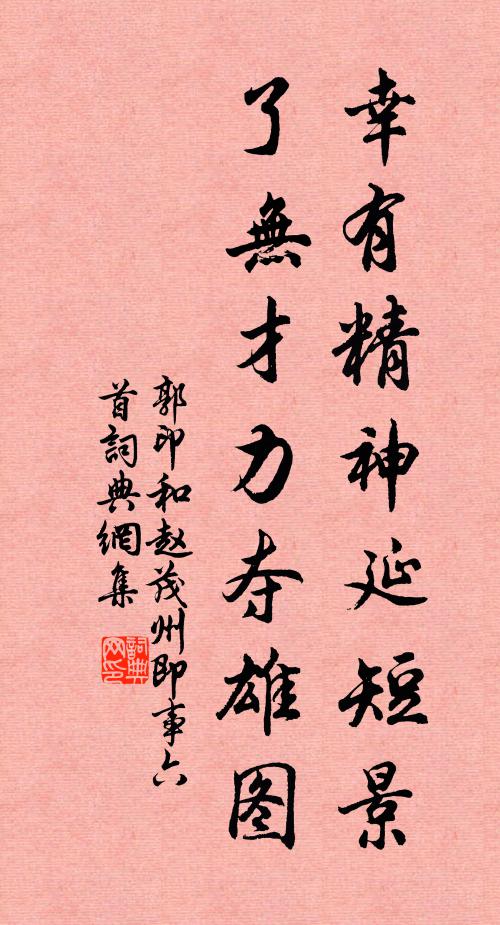 幸有精神延短景
了無才力夺雄图
郭印和赵茂州即事六
首詞典網集
詞典
网印